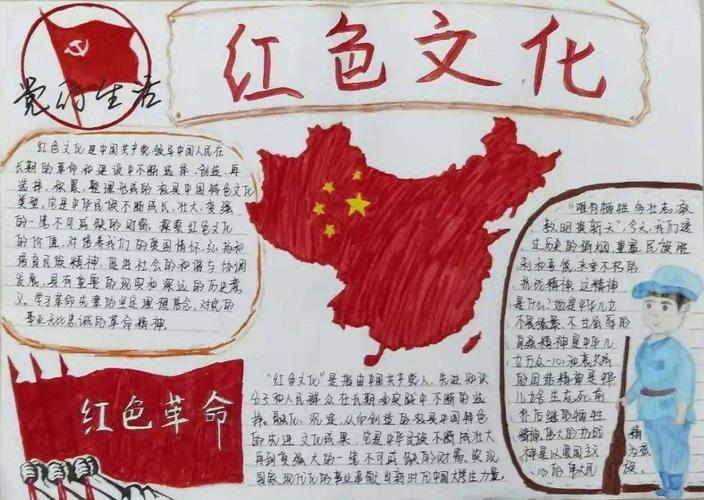 红色文化
党的生活
红色文化是中国共产党领导中国人民在
长期的革命和建设中不断选择、创造、再
选择、积累、整理形成的极具中国特色文化
类型,它是中华民族不断成长、壮大、变强
的一笔不可或缺的财富。探索红色文化
的价值,对培养我们的爱国情怀、弘扬和
培育民族精神、促进社会的和谐与协调
发展,具有重要的现实和深远的历史意
义。学习革命先辈的坚定理想信念、对党的
事业无比忠诚的革命精神。
红色革命
"红色文化"是指由中国共产党人、先进知识
分子和人民群众在长期的实践中不断的选
择、融化、沉淀,从而创造的极具中国特色
的先进文化成果,它是中华民族不断成壮大
再到变强大的一笔不可或缺的财富。实现
国家现代化的事业奉献出新时代中国大学生力量。
"唯有牺牲多壮志,敢
教日月换新天",今天,我们透
过历史的硝烟,重量民族胜
利和喜悦,来重不朽的
抗战精神,这精神
是什么?她是中华儿
女万众一心和衷共济
的团结精神是中华
儿女生死前
外后继的牺牲
精神,伟大的抗战 精
神是以爱国主义 为
心的伟大民 族